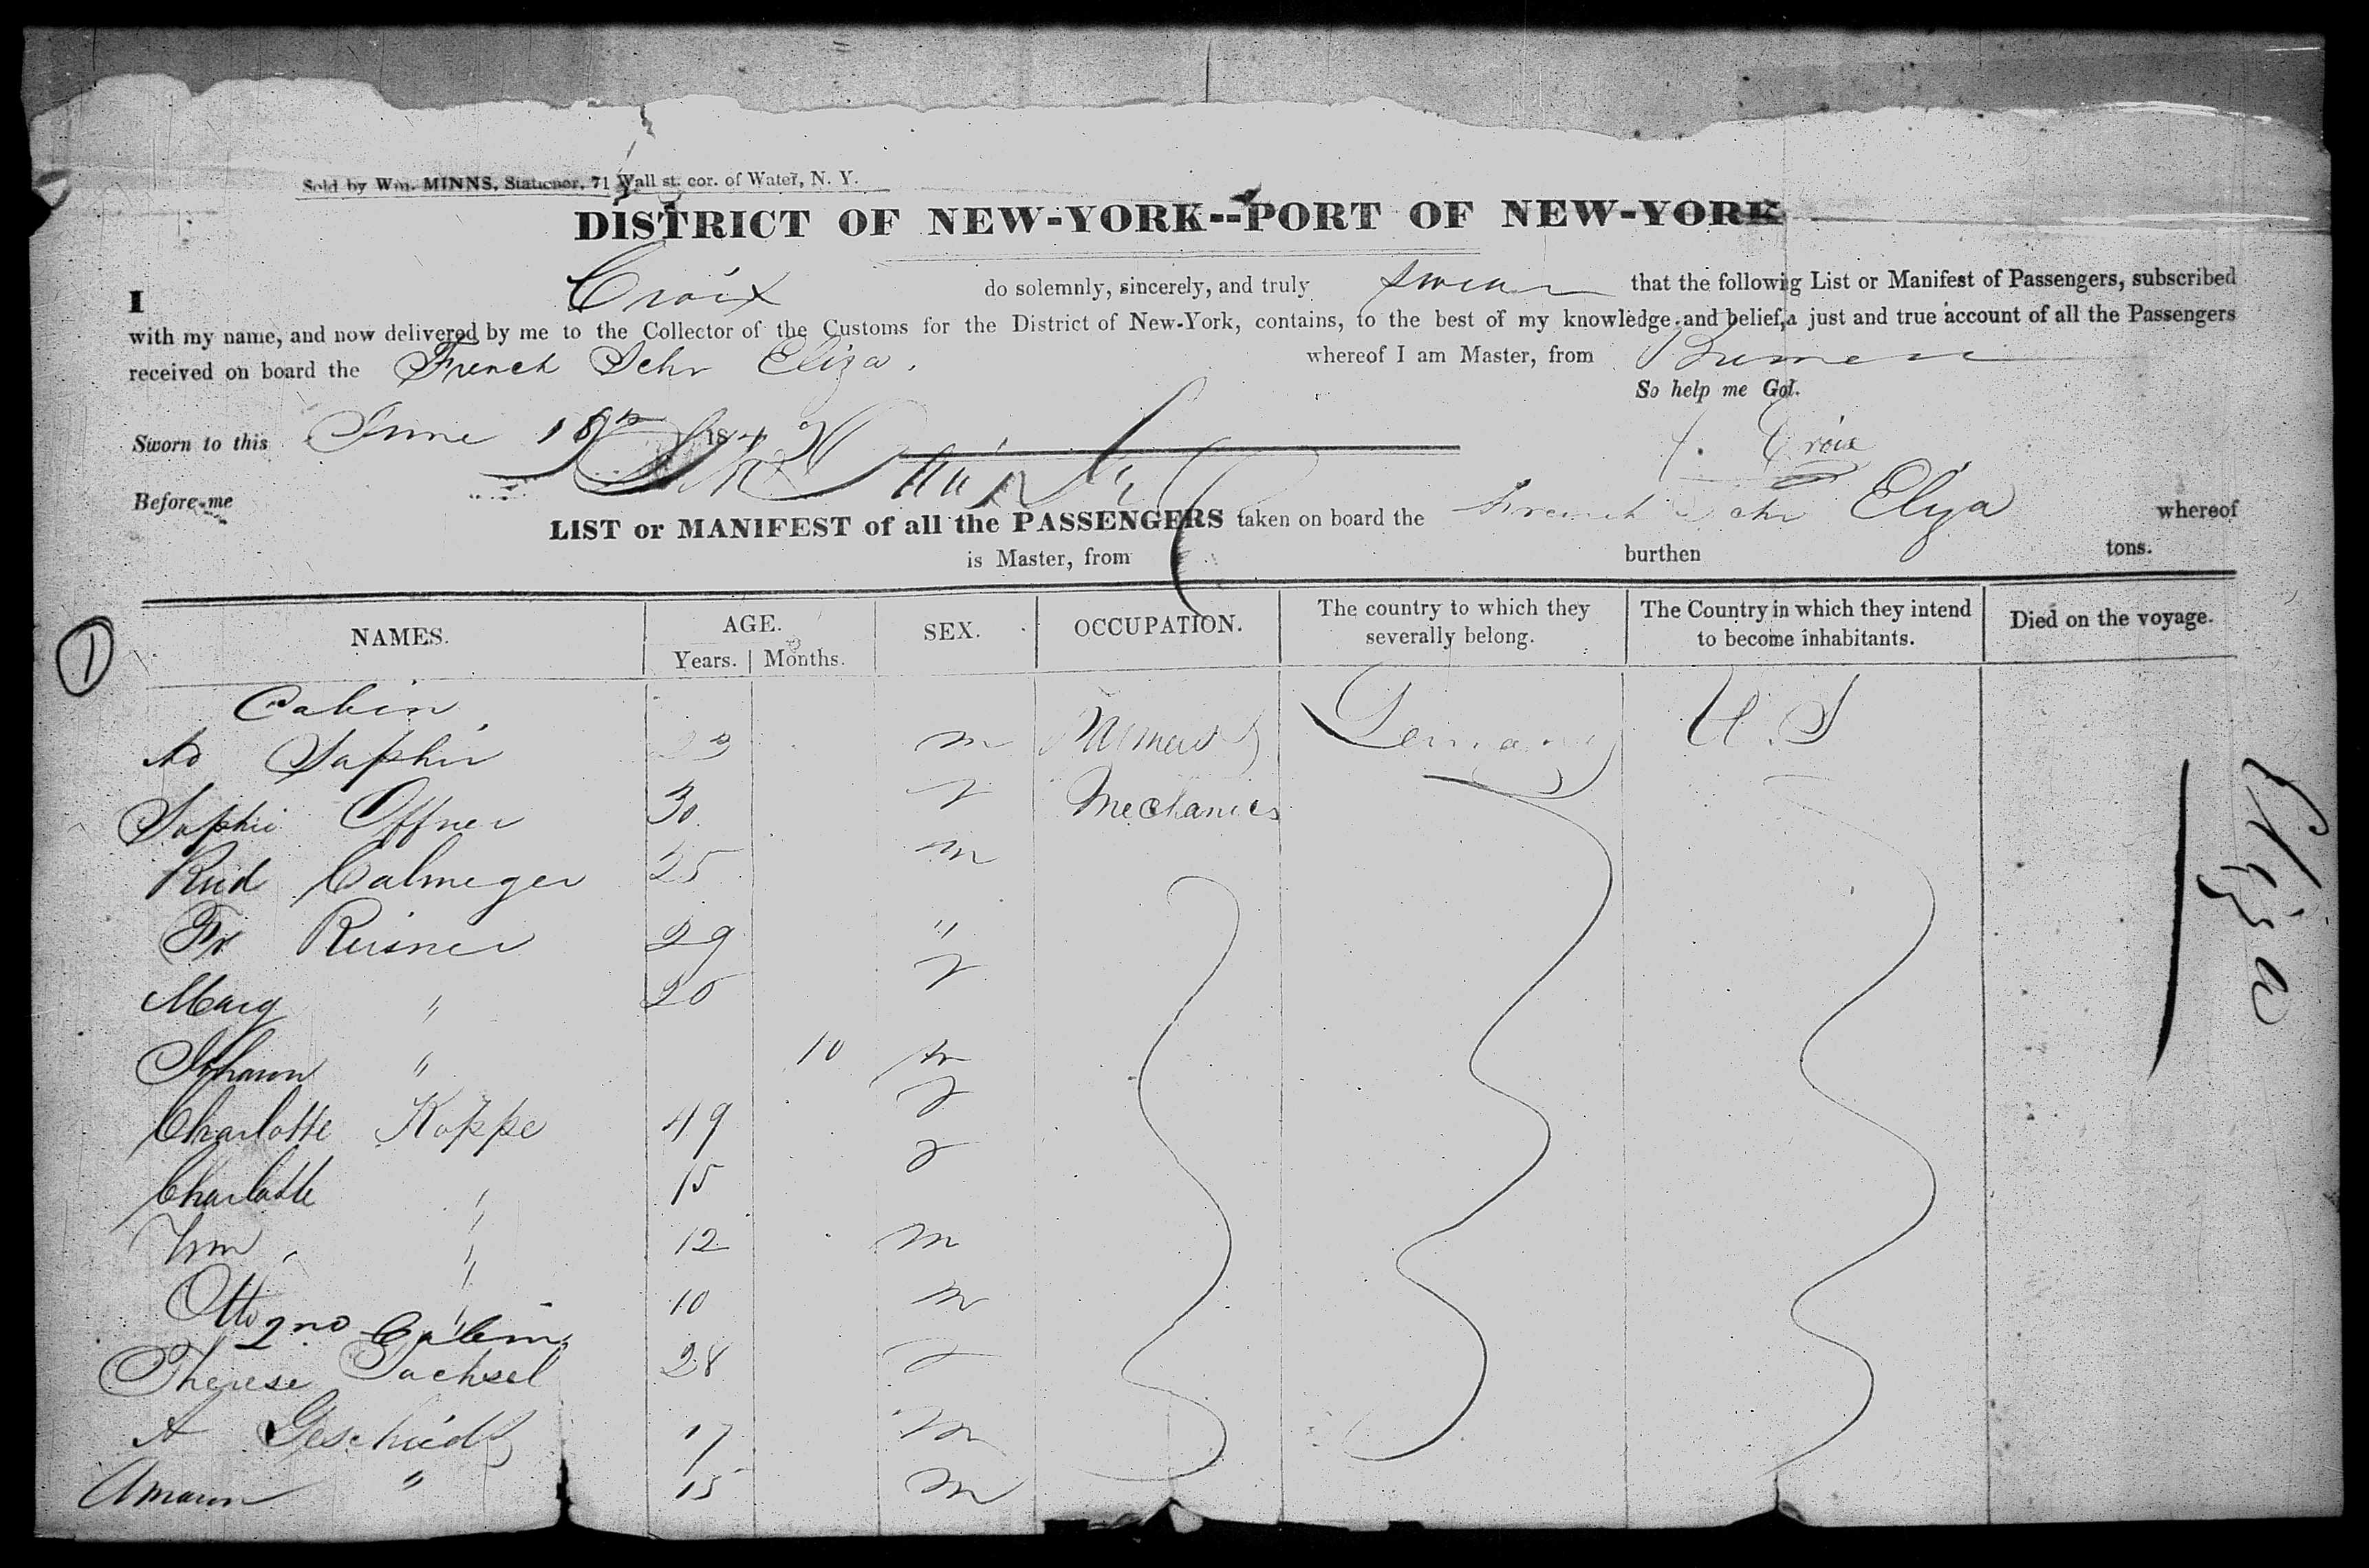 Sold by Wm. MINNS, Stationer, 71 Wall st. cor. of Water, N. Y.
DISTRICT OF NEW-YORK--PORT OF NEW-YORK
I Croix do solemnly, sincerely, and truly swear that the followig List or Manifest of Passengers, subscribed
with my name, and now delivered by me to the Collector of the Customs for the District of New-York, contains, to the best of my knowledge and belief, a just and true account of all the Passengers
received on board the French Schr Eliza. whereof I am Master, from Bremen
So help me God.
Sworn to this June 18th 184 Croix
Before me
LIST or MANIFEST of all the PASSENGERS taken on board the French Schr Eliza whereof
is Master, from burthen tons.
NAMES. AGE. SEX. OCCUPATION. The country to which they severally belong. The Country in which they intend to become inhabitants. Died on the voyage.
Years. Months.
1
Cabin
Ad Saphir 23 m Germany U.S
Sophie Offner 30 f Mechanics
Rud Calmeyer 25 m
Fr Reisner 29 "
Marg " 20 f
Johann " 10 m
Charlotte Koppe 49 f
Charlotte " 15 f
Wm " 12 m
Otto " 10 m
2nd Cabin
Therese Sachsel 28 f
A Geschiedt 17 m
Amann " 15 m
Eliza